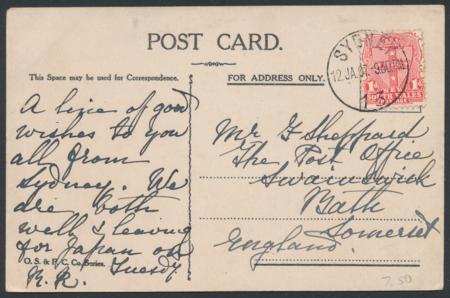 POST CARD.
This Space may be used for Correspondence.
FOR ADDRESS ONLY.
SYDNEY
12.JA.07
1D
1D
SOUTH WALES
A line of good
wishes to you
all from
Sydney. We
are both
well & leaving
for Japan on
Tuesdy.
R.R.
O. S. & P. C. Co. Series.
Mr F Sheppard
The Post Office
Swainswick
Bath
Somerset
England.
7.50